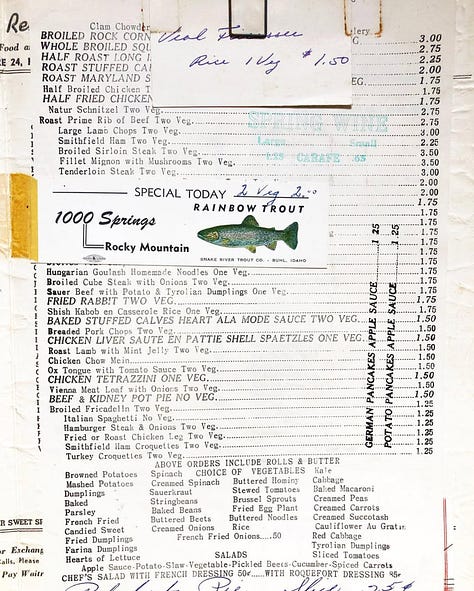 Re
Food a
E 24, 1
Clam Chowder
lery
Veal Fricassee
Rice 1 Veg $1.50
BROILED ROCK CORN
G 3.00
WHOLE BROILED SQU
2.75
HALF ROAST LONG I
2.25
ROAST STUFFED CA
2.00
ROAST MARYLAND S
Half Broiled Chicken T
1.75
HALF FRIED CHICKEN
1.75
Natur Schnitzel Two Veg. 2.75
Roast Prime Rib of Beef Two Veg. 2.75
Large Lamb Chops Two Veg. 3.00
Smithfield Ham Two Veg. 2.25
Broiled Sirloin Steak Two Veg. 3.50
Fillet Mignon with Mushrooms Two Veg. 3.50
Tenderloin Steak Two Veg. 3.00
SPRING WINE
Large Small
CARAFE .65
2.00
2.00
1.75
1.75
SPECIAL TODAY 2 Veg 2.00
RAINBOW TROUT
1000 Springs
Rocky Mountain
SNAKE RIVER TROUT CO. - BUHL, IDAHO
Hungarian Goulash Homemade Noodles One Veg. 1.75
Broiled Cube Steak with Onions Two Veg. 1.75
Sauer Beef with Potato & Tyrolian Dumplings One Veg. 1.75
FRIED RABBIT TWO VEG. 1.75
Shish Kabob en Casserole Rice One Veg. 1.75
BAKED STUFFED CALVES HEART ALA MODE SAUCE TWO VEG. 1.50
Breaded Pork Chops Two Veg. 1.75
CHICKEN LIVER SAUTE EN PATTIE SHELL SPAETZLES ONE VEG. 1.50
Roast Lamb with Mint Jelly Two Veg. 1.75
Chicken Chow Mein 1.50
Ox Tongue with Tomato Sauce Two Veg. 1.50
CHICKEN TETRAZZINI ONE VEG. 1.50
Vienna Meat Loaf with Onions Two Veg. 1.50
BEEF & KIDNEY POT PIE NO VEG. 1.50
Broiled Fricadelln Two Veg. 1.25
Italian Spaghetti No Veg. 1.25
Hamburger Steak & Onions Two Veg. 1.25
Fried or Roast Chicken Leg Two Veg. 1.25
Smithfield Ham Croquettes Two Veg. 1.25
Turkey Croquettes Two Veg. 1.25
GERMAN PANCAKES APPLE SAUCE 1 25
POTATO PANCAKES APPLE SAUCE 1 25
ABOVE ORDERS INCLUDE ROLLS & BUTTER
CHOICE OF VEGETABLES
Browned Potatoes Spinach Kale
Mashed Potatoes Creamed Spinach Buttered Hominy Cabbage
Dumplings Sauerkraut Stewed Tomatoes Baked Macaroni
Baked Stringbeans Brussel Sprouts Creamed Peas
Parsley Baked Beans Fried Egg Plant Creamed Carrots
French Fried Buttered Beets Buttered Noodles Creamed Succotash
Candied Sweet Creamed Onions Rice Cauliflower Au Gratin
Fried Dumplings French Fried Onions.....50 Red Cabbage
Farina Dumplings Tyrolian Dumplings
Hearts of Lettuce SALADS Sliced Tomatoes
Apple Sauce-Potato-Slaw-Vegetable-Pickled Beers-Cucumber-Spiced Carrots
CHEF'S SALAD WITH FRENCH DRESSING 50c.....WITH ROQUEFORT DRESSING
R SWEET SH
or Exchang
alls, Please
Pay Waitr